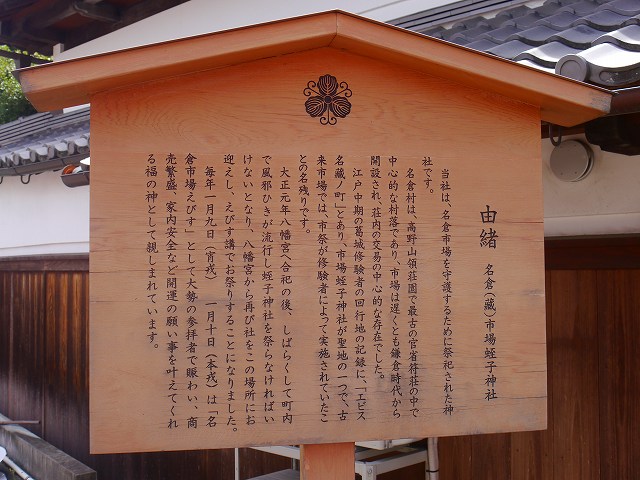 由緒 名倉(藏)市場蛭子神社
当社は、名倉市場を守護するために祭祀された神
社です。
名倉村は、高野山領荘園で最古の官省符荘の中で
中心的な村落であり、市場は遅くとも鎌倉時代から
開設され、荘内の交易の中心的な存在でした。
江戸中期の葛城修験者の回行地の記録に、「エビス
名蔵ノ町」とあり、市場蛭子神社が聖地の一つで、古
来市場では、市祭が修験者によって実施されていたこ
との名残りです。
大正元年八幡宮へ合祀の後、しばらくして町内
で風邪ひきが流行し蛭子神社を祭らなければい
けないとなり、八幡宮から再び社をこの場所にお
迎えし、えびす講でお祭りすることになりました。
毎年一月九日(宵戎) 一月十日(本戎)は「名
倉市場えびす」として大勢の参拝者で賑わい、商
売繁盛、家内安全など開運の願い事を叶えてくれ
る福の神として親しまれています。